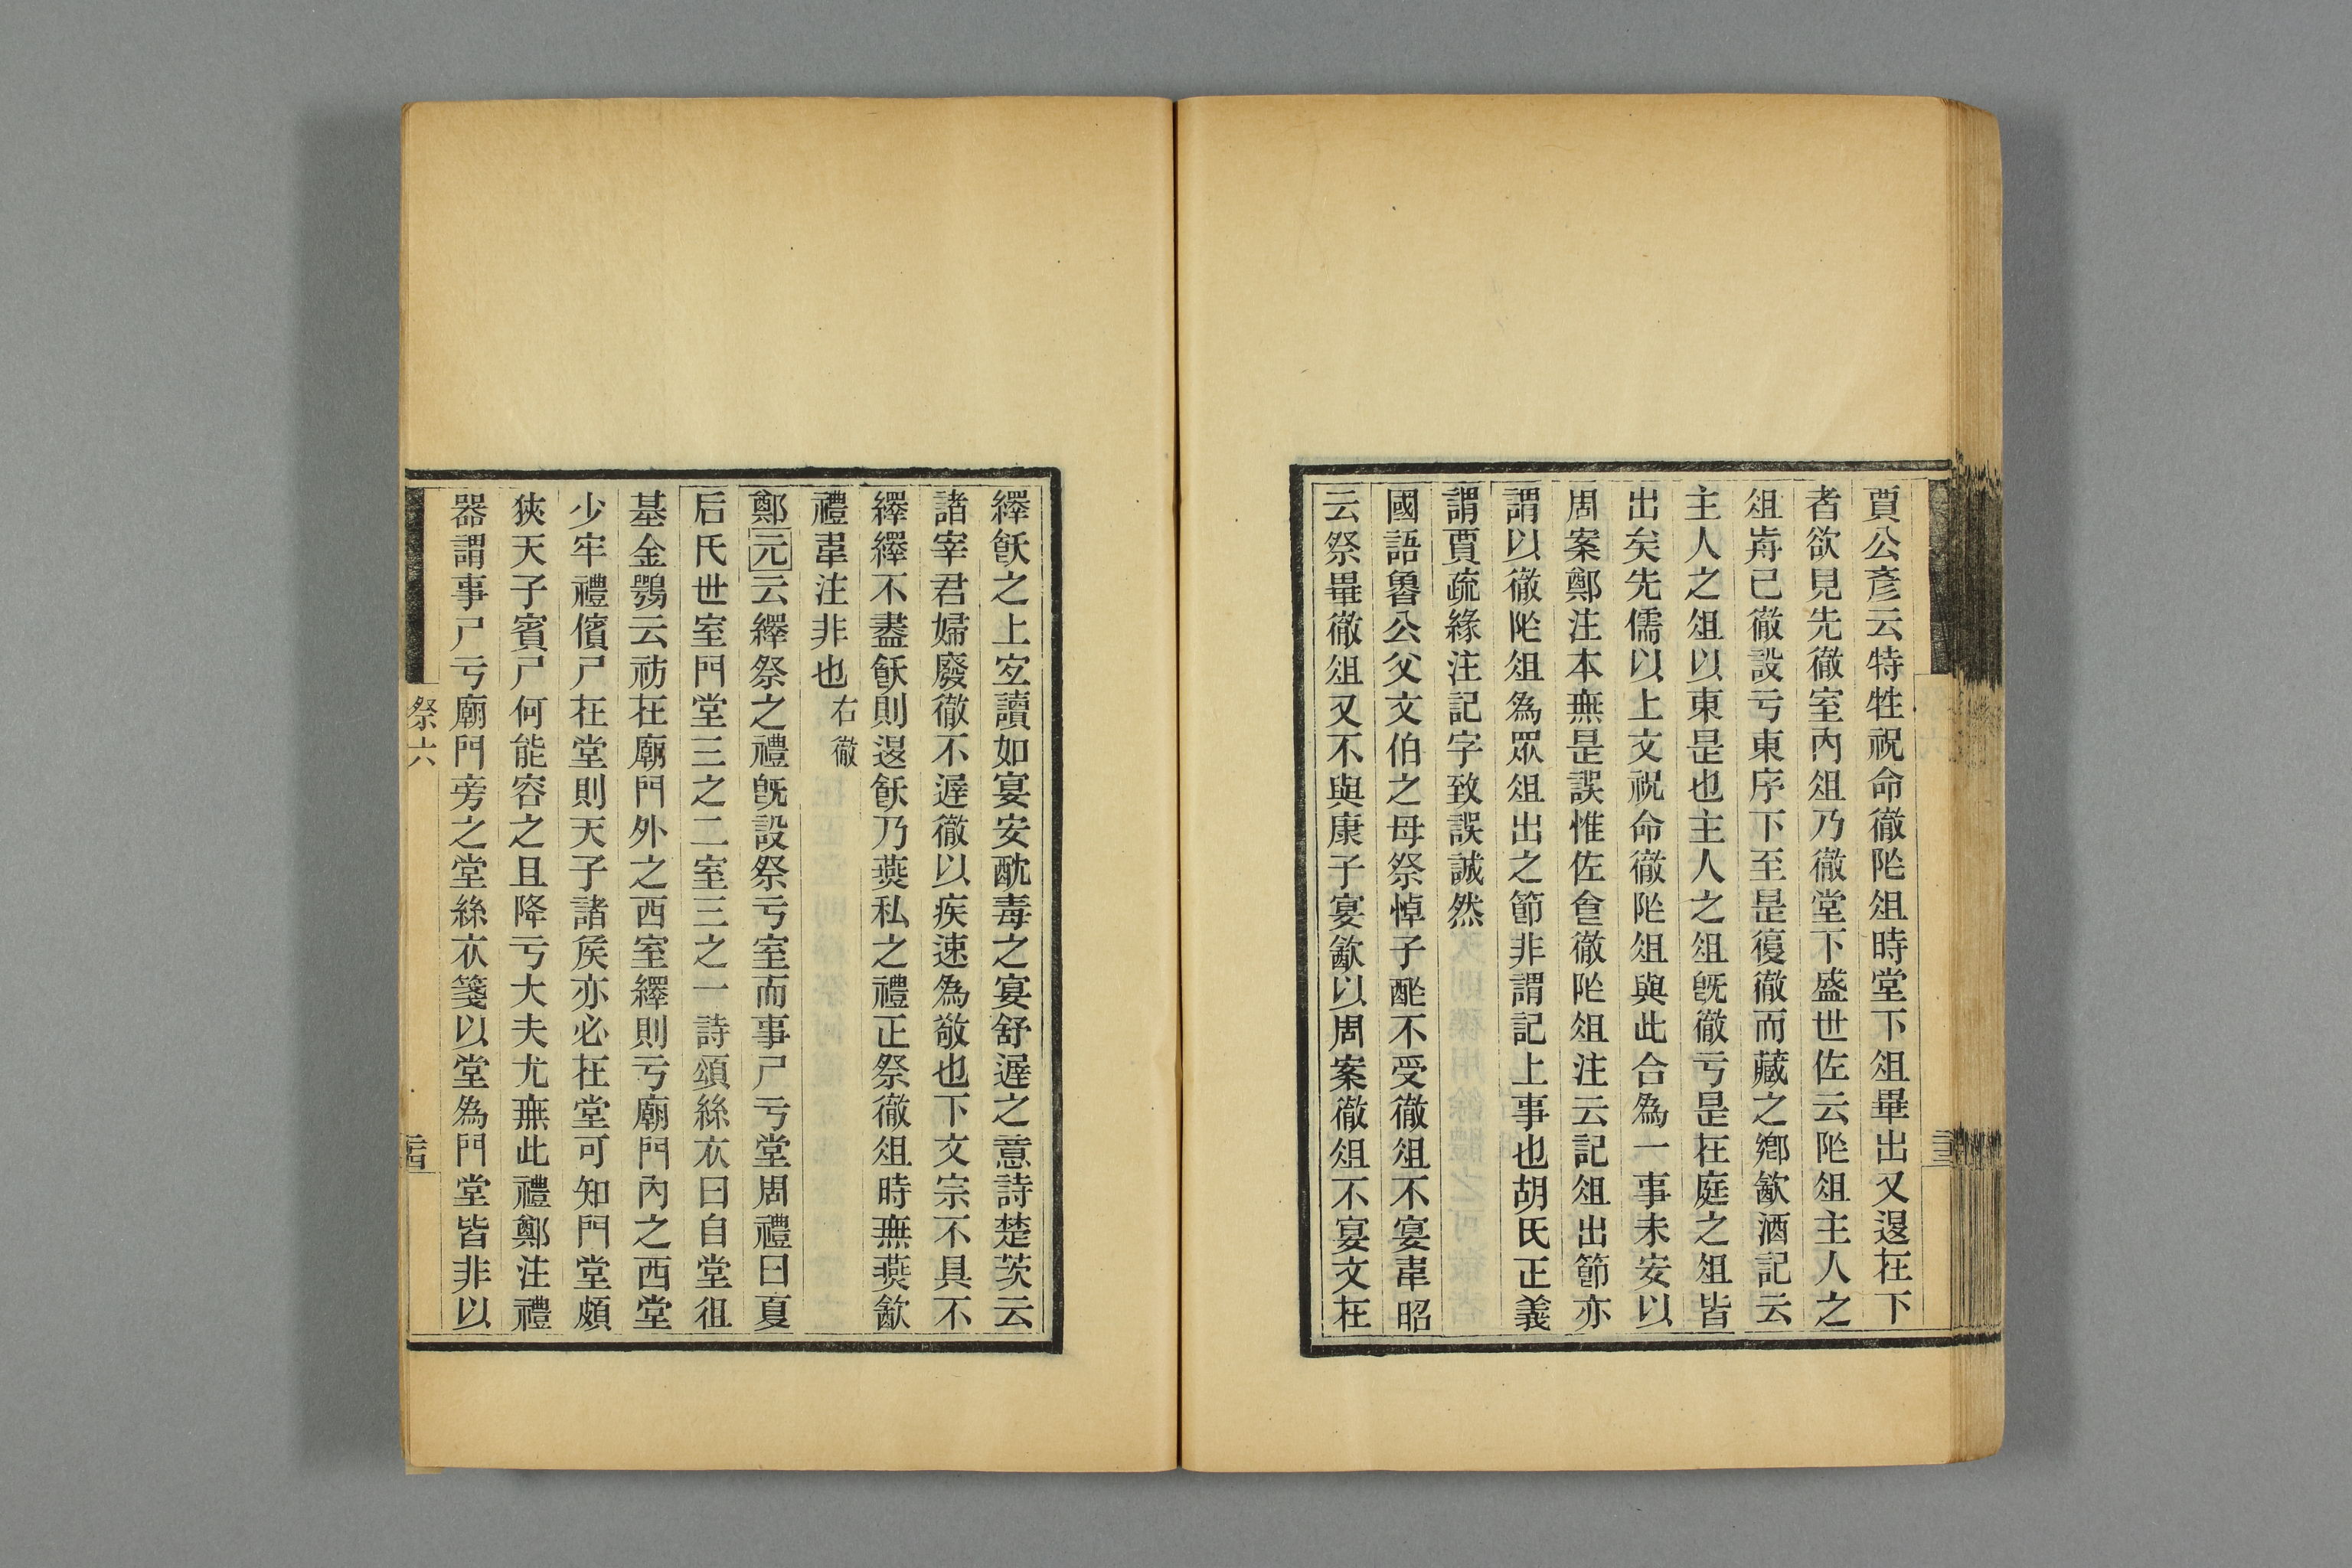 賈公彥云特牲祝命徹阼俎時堂下俎畢出又𨓤在下
者欲見先徹室內俎乃徹堂下盛世佐云阼俎主人之
俎歬已徹設亏東序下至是復徹而藏之鄉㱃酒記云
主人之俎以東是也主人之俎旣徹亏是在庭之俎皆
出矣先儒以上文祝命徹阼俎與此合為一事未安以
周案鄭注本無是誤惟佐食徹阼俎注云記俎出節亦
謂以徹阼俎為眾俎出之節非謂記上事也胡氏正義
謂賈疏緣注記字致誤誠然
國語魯公父文伯之母祭悼子酢不受徹俎不宴韋昭
云祭畢徹俎又不與康子宴㱃以周案徹俎不宴文在
繹飫之上宴讀如宴安酖毒之宴舒遟之意詩楚茨云
諸宰君婦廢徹不遟徹以疾速為敬也下文宗不具不
繹繹不盡飫則𨓤飫乃燕私之禮正祭徹俎時無燕㱃
禮韋注非也 右徹
鄭元云繹祭之禮旣設祭亏室而事尸亏堂周禮曰夏
后氏世室門堂三之二室三之一詩頌絲衣曰自堂徂
基金鶚云祊在廟門外之西室繹則亏廟門內之西堂
少牢禮儐尸在堂則天子諸侯亦必在堂可知門堂頗
狹天子賓尸何能容之且降亏大夫尤無此禮鄭注禮
器謂事尸亏廟門旁之堂絲衣箋以堂為門堂皆非以
祭六